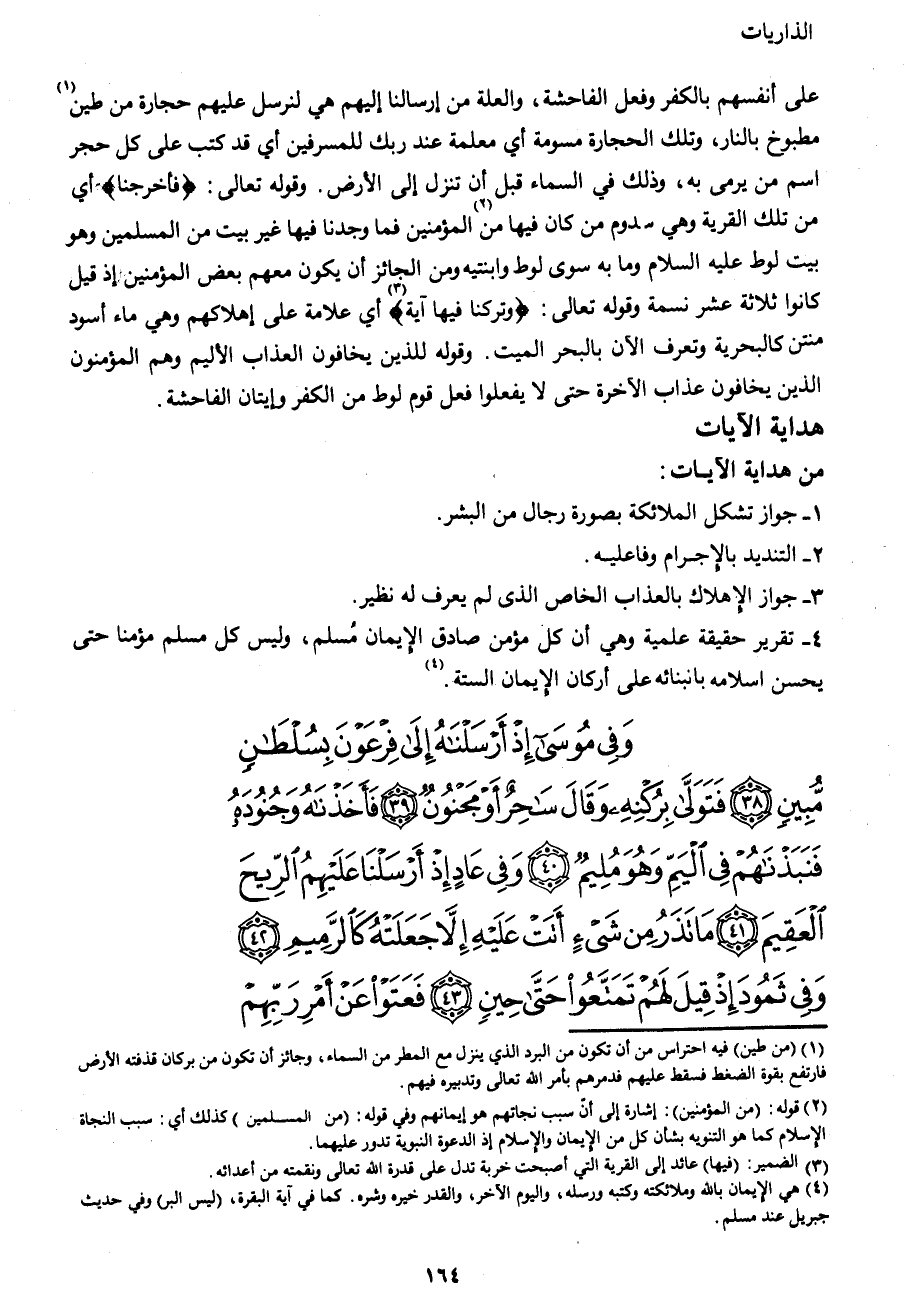 الذاريات
على أنفسهم بالكفر وفعل الفاحشة، والعلة من إرسالنا إليهم هي لنرسل عليهم حجارة من طين(١)
مطبوخ بالنار، وتلك الحجارة مسومة أي معلمة عند ربك للمسرفين أي قد كتب على كل حجر
اسم من يرمى به، وذلك في السماء قبل أن تنزل إلى الأرض. وقوله تعالى: ﴿فأخرجنا﴾ أي
من تلك القرية وهي سدوم من كان فيها من(٢) المؤمنين فما وجدنا فيها غير بيت من المسلمين وهو
بيت لوط عليه السلام وما به سوى لوط وابنتيه ومن الجائز أن يكون معهم بعض المؤمنين إذ قيل
كانوا ثلاثة عشر نسمة وقوله تعالى: ﴿وتركنا فيها(٣) آية﴾ أي علامة على إهلاكهم وهي ماء أسود
منتن كالبحرية وتعرف الآن بالبحر الميت. وقوله للذين يخافون العذاب الأليم وهم المؤمنون
الذين يخافون عذاب الآخرة حتى لا يفعلوا فعل قوم لوط من الكفر وإيتان الفاحشة.
هداية الآيات
من هداية الآيـات:
١ـ جواز تشكل الملائكة بصورة رجال من البشر.
٢ـ التنديد بالإجـرام وفاعليـه.
٣ـ جواز الإهلاك بالعذاب الخاص الذى لم يعرف له نظير.
٤ـ تقرير حقيقة علمية وهي أن كل مؤمن صادق الإيمان مُسلم، وليس كل مسلم مؤمنا حتى
يحسن اسلامه بانبنائه على أركان الإيمان الستة.(٤)
وَفِي مُوسَىٰٓ إِذْ أَرْسَلْنَٰهُ إِلَىٰ فِرْعَوْنَ بِسُلْطَٰنٍ
مُّبِينٍ ٣٨ فَتَوَلَّىٰ بِرُكْنِهِۦ وَقَالَ سَٰحِرٌ أَوْ مَجْنُونٌ ٣٩ فَأَخَذْنَٰهُ وَجُنُودَهُۥ
فَنَبَذْنَٰهُمْ فِي الْيَمِّ وَهُوَ مُلِيمٌ ٤٠ وَفِي عَادٍ إِذْ أَرْسَلْنَا عَلَيْهِمُ الرِّيحَ
الْعَقِيمَ ٤١ مَا تَذَرُ مِن شَيْءٍ أَتَتْ عَلَيْهِ إِلَّا جَعَلَتْهُ كَالرَّمِيمِ ٤٢
وَفِي ثَمُودَ إِذْ قِيلَ لَهُمْ تَمَتَّعُوا۟ حَتَّىٰ حِينٍ ٤٣ فَعَتَوْا۟ عَنْ أَمْرِ رَبِّهِمْ
(١) (من طين) فيه احتراس من أن تكون من البرد الذي ينزل مع المطر من السماء، وجائز أن تكون من بركان قذفته الأرض
فارتفع بقوة الضغط فسقط عليهم فدمرهم بأمر الله تعالى وتدبيره فيهم.
(٢) قوله: (من المؤمنين): إشارة إلى أنّ سبب نجاتهم هو إيمانهم وفي قوله: (من المسـلمين) كذلك أي: سبب النجاة
الإسلام كما هو التنويه بشأن كل من الإيمان والإسلام إذ الدعوة النبوية تدور عليهما.
(٣) الضمير: (فيها) عائد إلى القرية التي أصبحت خربة تدل على قدرة الله تعالى ونقمته من أعدائه.
(٤) هي الإيمان بالله وملائكته وكتبه ورسله، واليوم الآخر، والقدر خيره وشره. كما في آية البقرة، (ليس البر) وفي حديث
جبريل عند مسلم.
١٦٤